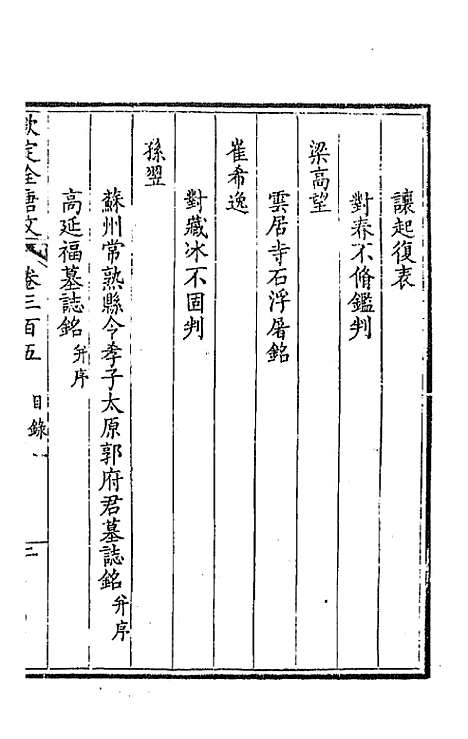 讓起復表
對春不脩鑑判
梁高望
雲居寺石浮屠銘
崔希逸
對藏冰不固判
孫翌
蘇州常熟縣令孝子太原郭府君墓誌銘并序
高延福墓誌銘并序
欽定全唐文 卷三百五 目錄 二